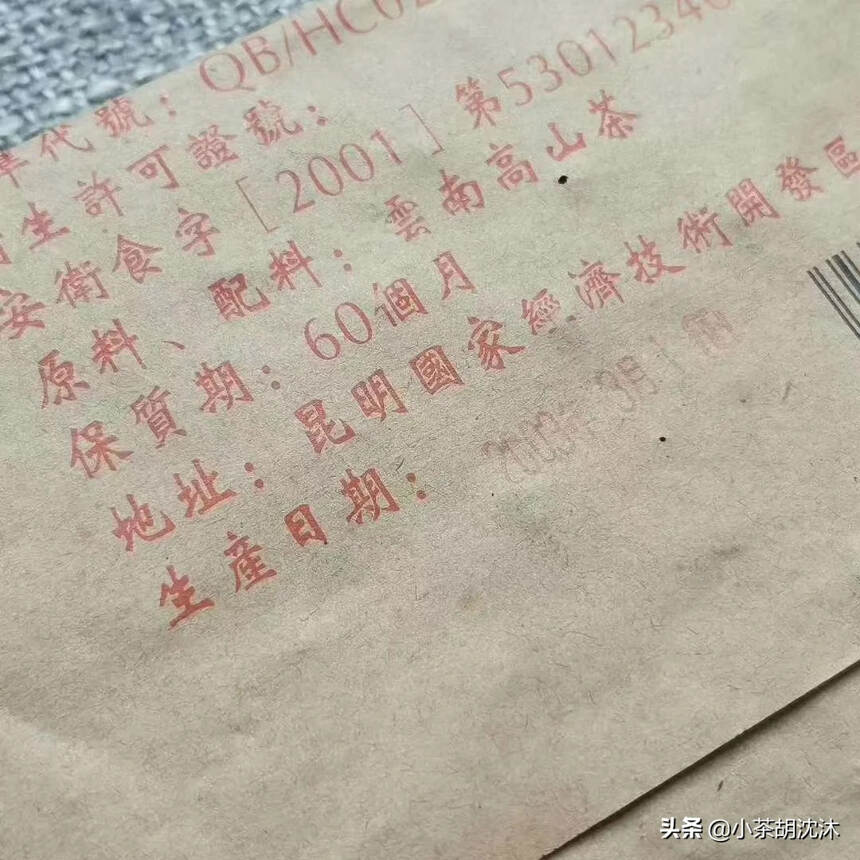 準代號：QB/HC02
生許可證號：
安衛食字［2001］第53012340
原料、配料：雲南高山茶
保質期：60個月
地址：昆明國家經濟技術開發區
生產日期：2003年3月1
头条 @小茶胡沈沐